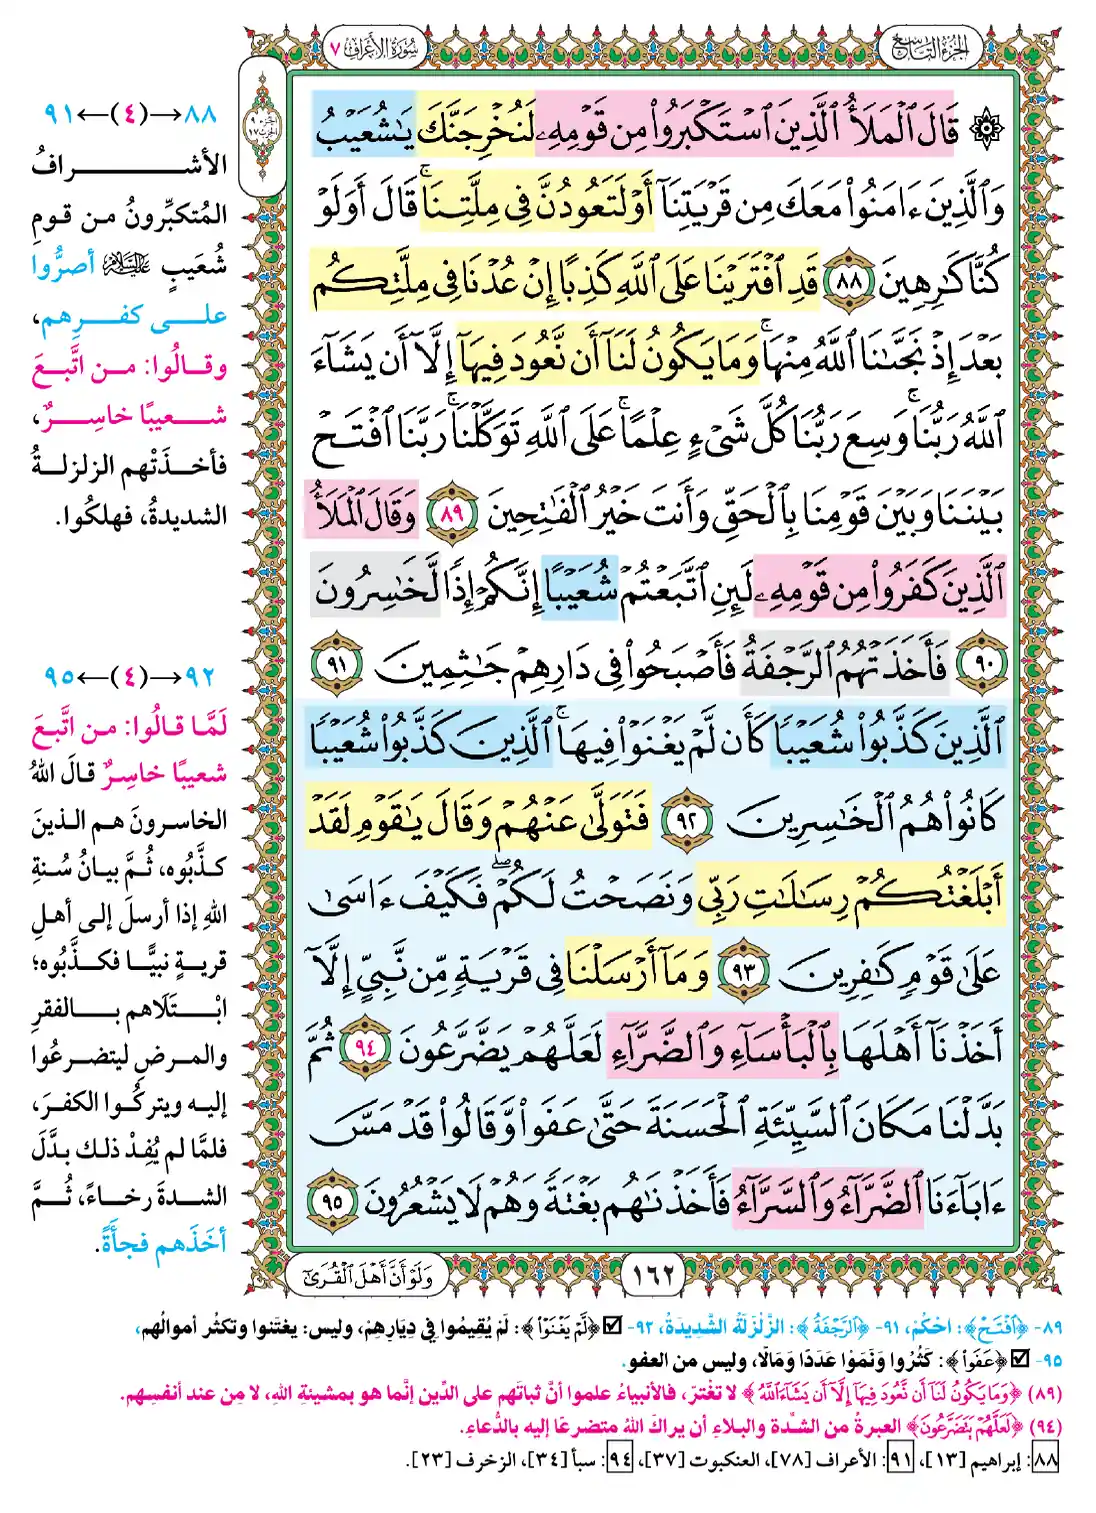 الجزء التاسع
سورة الأعراف ٧
الجزء ٩
الحزب ١٧
۞ قَالَ ٱلْمَلَأُ ٱلَّذِينَ ٱسْتَكْبَرُوا۟ مِن قَوْمِهِۦ لَنُخْرِجَنَّكَ يَـٰشُعَيْبُ
وَٱلَّذِينَ ءَامَنُوا۟ مَعَكَ مِن قَرْيَتِنَآ أَوْ لَتَعُودُنَّ فِى مِلَّتِنَا ۚ قَالَ أَوَلَوْ
كُنَّا كَـٰرِهِينَ ٨٨ قَدِ ٱفْتَرَيْنَا عَلَى ٱللَّهِ كَذِبًا إِنْ عُدْنَا فِى مِلَّتِكُم
بَعْدَ إِذْ نَجَّىٰنَا ٱللَّهُ مِنْهَا ۚ وَمَا يَكُونُ لَنَآ أَن نَّعُودَ فِيهَآ إِلَّآ أَن يَشَآءَ
ٱللَّهُ رَبُّنَا ۚ وَسِعَ رَبُّنَا كُلَّ شَىْءٍ عِلْمًا ۚ عَلَى ٱللَّهِ تَوَكَّلْنَا ۚ رَبَّنَا ٱفْتَحْ
بَيْنَنَا وَبَيْنَ قَوْمِنَا بِٱلْحَقِّ وَأَنتَ خَيْرُ ٱلْفَـٰتِحِينَ ٨٩ وَقَالَ ٱلْمَلَأُ
ٱلَّذِينَ كَفَرُوا۟ مِن قَوْمِهِۦ لَئِنِ ٱتَّبَعْتُمْ شُعَيْبًا إِنَّكُمْ إِذًا لَّخَـٰسِرُونَ
٩٠ فَأَخَذَتْهُمُ ٱلرَّجْفَةُ فَأَصْبَحُوا۟ فِى دَارِهِمْ جَـٰثِمِينَ ٩١
ٱلَّذِينَ كَذَّبُوا۟ شُعَيْبًا كَأَن لَّمْ يَغْنَوْا۟ فِيهَا ۚ ٱلَّذِينَ كَذَّبُوا۟ شُعَيْبًا
كَانُوا۟ هُمُ ٱلْخَـٰسِرِينَ ٩٢ فَتَوَلَّىٰ عَنْهُمْ وَقَالَ يَـٰقَوْمِ لَقَدْ
أَبْلَغْتُكُمْ رِسَـٰلَـٰتِ رَبِّى وَنَصَحْتُ لَكُمْ ۖ فَكَيْفَ ءَاسَىٰ
عَلَىٰ قَوْمٍ كَـٰفِرِينَ ٩٣ وَمَآ أَرْسَلْنَا فِى قَرْيَةٍ مِّن نَّبِىٍّ إِلَّآ
أَخَذْنَآ أَهْلَهَا بِٱلْبَأْسَآءِ وَٱلضَّرَّآءِ لَعَلَّهُمْ يَضَّرَّعُونَ ٩٤ ثُمَّ
بَدَّلْنَا مَكَانَ ٱلسَّيِّئَةِ ٱلْحَسَنَةَ حَتَّىٰ عَفَوا۟ وَّقَالُوا۟ قَدْ مَسَّ
ءَابَآءَنَا ٱلضَّرَّآءُ وَٱلسَّرَّآءُ فَأَخَذْنَـٰهُم بَغْتَةً وَهُمْ لَا يَشْعُرُونَ ٩٥
١٦٢
وَلَوْ أَنَّ أَهْلَ ٱلْقُرَىٰٓ
٨٨→(٤)←٩١
الأشرافُ
المُتكبِّرونُ من قومِ
شُعَيبٍ عليه السلام أصرُّوا
على كفرِهم،
وقالُوا: من اتَّبعَ
شعيبًا خاسِرٌ،
فأخذَتْهم الزلزلةُ
الشديدةُ، فهلكُوا.
٩٢→(٤)←٩٥
لَمَّا قالُوا: من اتَّبعَ
شعيبًا خاسِرٌ قالَ اللهُ
الخاسرونَ هم الذينَ
كذَّبُوه، ثُمَّ بيانُ سُنةِ
اللهِ إذا أرسلَ إلى أهلِ
قريةٍ نبيًّا فكذَّبُوه؛
ابْتَلَاهم بالفقرِ
والمرضِ ليتضرعُوا
إليه ويتركُوا الكفرَ،
فلمَّا لم يُفِدْ ذلك بدَّلَ
الشدةَ رخاءً، ثُمَّ
أخَذَهم فجأةً.
٨٩- ﴿ٱفْتَحْ﴾: احكُمْ، ٩١- ﴿ٱلرَّجْفَةُ﴾: الزَّلْزَلَةُ الشَّدِيدَةُ، ٩٢- ☑ ﴿لَّمْ يَغْنَوْا۟﴾: لَمْ يُقِيمُوا فِي دِيَارِهِمْ، وليس: يغتَنوا وتكثُر أموالُهم،
٩٥- ☑ ﴿عَفَوا۟﴾: كَثُرُوا وَنَمَوْا عَدَدًا وَمَالًا، وليس من العفو.
(٨٩) ﴿وَمَا يَكُونُ لَنَآ أَن نَّعُودَ فِيهَآ إِلَّآ أَن يَشَآءَ ٱللَّهُ﴾ لا تغْترَ، فالأنبياءُ علموا أنَّ ثباتَهم على الدِّين إنَّما هو بمشيئةِ اللهِ، لا مِن عند أنفسِهم.
(٩٤) ﴿لَعَلَّهُمْ يَضَّرَّعُونَ﴾ العبرةُ من الشدَّة والبلاءِ أن يراكَ اللهُ متضرعًا إليه بالدُّعاءِ.
٨٨: إبراهيم [١٣]، ٩١: الأعراف [٧٨]، العنكبوت [٣٧]، ٩٤: سبأ [٣٤]، الزخرف [٢٣].